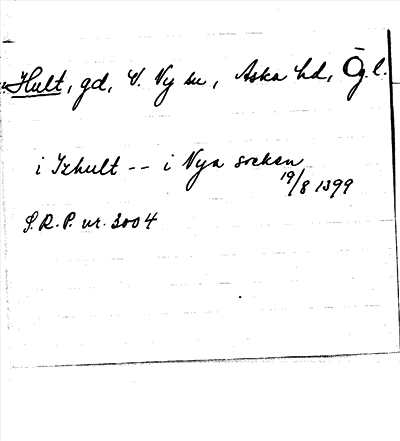 Hult, gd, V. Ny sn, Aska hd, Ög. l.
i Izhult -- i Nya socken
19/8 1399
S.R.P. nr. 3004